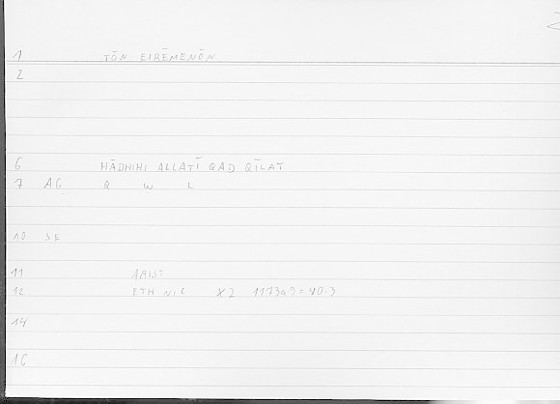 1 TŌN EIRĒMENŌN
2
6 HĀḎIHI ALLATĪ QAD QĪLAT
7 AG Q W L
10 SE
11 ARIST
12 ETH NIC X2 1173a9 = 40.3
14
16